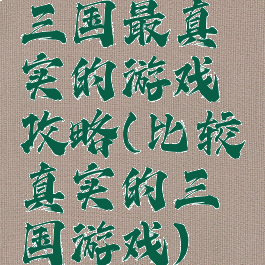 三国最真
实的游戏
攻略(比较
真实的三
国游戏)